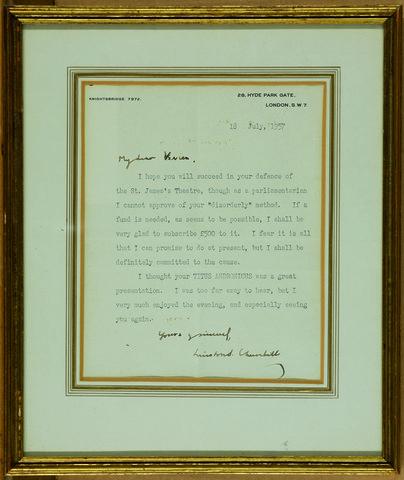 KNIGHTSBRIDGE 7972.
28, HYDE PARK GATE,
LONDON, S.W.7.
18 July, 1957
My dear Vivien,
I hope you will succeed in your defence of
the St. James's Theatre, though as a parliamentarian
I cannot approve of your "disorderly" method. If a
fund is needed, as seems to be possible, I shall be
very glad to subscribe £500 to it. I fear it is all
that I can promise to do at present, but I shall be
definitely committed to the cause.
I thought your TITUS ANDRONICUS was a great
presentation. I was too far away to hear, but I
very much enjoyed the evening, and especially seeing
you again.
Yours
Winston S. Churchill